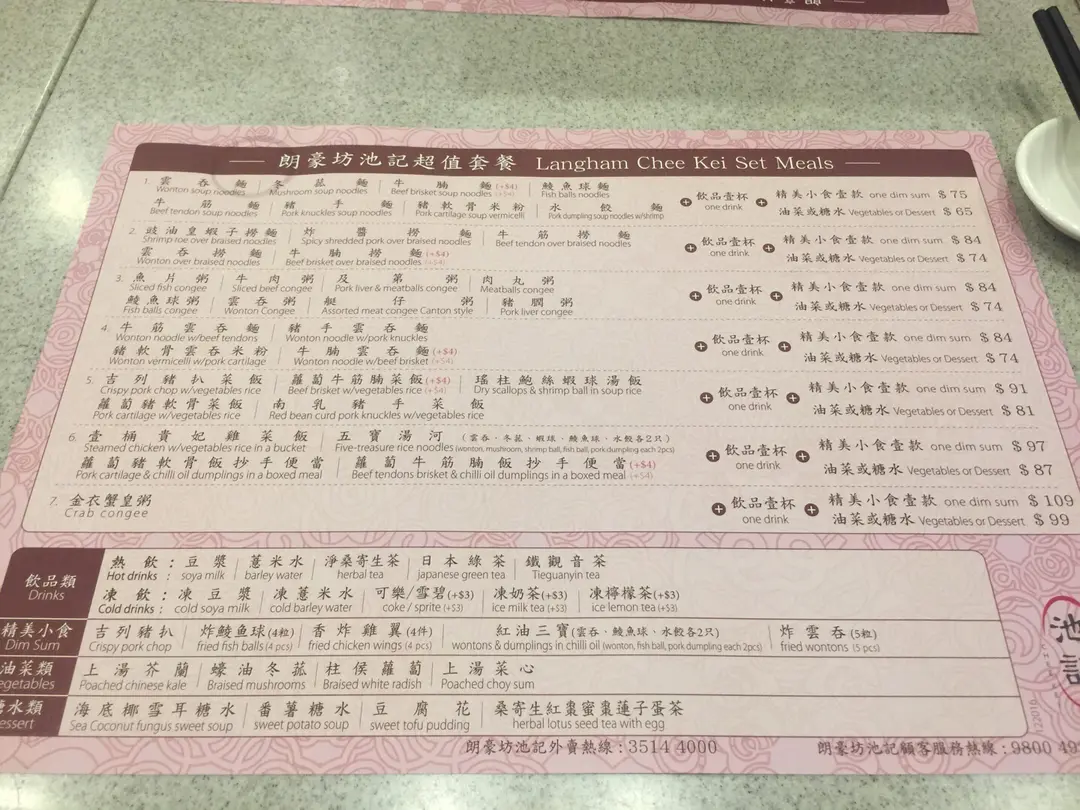 朗豪坊池記超值套餐 Langham Chee Kei Set Meals
1. 雲吞麵 冬菰麵 牛腩麵(+$4) 鯪魚球麵
Wonton soup noodles Mushroom soup noodles Beef brisket soup noodles (+$4) Fish balls noodles
牛筋麵 豬手麵 豬軟骨米粉 水餃麵
Beef tendon soup noodles Pork knuckles soup noodles Pork cartilage soup vermicelli Pork dumpling soup noodles w/shrimp
+ 飲品壹杯 + 精美小食壹款 one dim sum $ 75
one drink 油菜或糖水 Vegetables or Dessert $ 65
2. 豉油皇蝦子撈麵 炸醬撈麵 牛筋撈麵
Shrimp roe over braised noodles Spicy shredded pork over braised noodles Beef tendon over braised noodles
雲吞撈麵 牛腩撈麵(+$4)
Wonton over braised noodles Beef brisket over braised noodles (+$4)
+ 飲品壹杯 + 精美小食壹款 one dim sum $ 84
one drink 油菜或糖水 Vegetables or Dessert $ 74
3. 魚片粥 牛肉粥 及第粥 肉丸粥
Sliced fish congee Sliced beef congee Pork liver & meatballs congee Meatballs congee
鯪魚球粥 雲吞粥 艇仔粥 豬膶粥
Fish balls congee Wonton Congee Assorted meat congee Canton style Pork liver congee
+ 飲品壹杯 + 精美小食壹款 one dim sum $ 84
one drink 油菜或糖水 Vegetables or Dessert $ 74
4. 牛筋雲吞麵 豬手雲吞麵
Wonton noodle w/beef tendons Wonton noodle w/pork knuckles
豬軟骨雲吞米粉 牛腩雲吞麵(+$4)
Wonton vermicelli w/pork cartilage Wonton noodle w/beef brisket (+$4)
+ 飲品壹杯 + 精美小食壹款 one dim sum $ 84
one drink 油菜或糖水 Vegetables or Dessert $ 74
5. 吉列豬扒菜飯 蘿蔔牛筋腩菜飯(+$4) 瑤柱鮑絲蝦球湯飯
Crispy pork chop w/vegetables rice Beef brisket w/vegetables rice (+$4) Dry scallops & shrimp ball in soup rice
蘿蔔豬軟骨菜飯 南乳豬手菜飯
Pork cartilage w/vegetables rice Red bean curd pork knuckles w/vegetables rice
+ 飲品壹杯 + 精美小食壹款 one dim sum $ 91
one drink 油菜或糖水 Vegetables or Dessert $ 81
6. 壹桶貴妃雞菜飯 五寶湯河 (雲吞、冬菰、蝦球、鯪魚球、水餃各2只)
Steamed chicken w/vegetables rice in a bucket Five-treasure rice noodles (wonton, mushroom, shrimp ball, fish ball, pork dumpling each 2pcs)
蘿蔔豬軟骨飯抄手便當 蘿蔔牛筋腩飯抄手便當(+$4)
Pork cartilage & chilli oil dumplings in a boxed meal Beef tendons brisket & chilli oil dumplings in a boxed meal (+$4)
+ 飲品壹杯 + 精美小食壹款 one dim sum $ 97
one drink 油菜或糖水 Vegetables or Dessert $ 87
7. 金衣蟹皇粥
Crab congee
+ 飲品壹杯 + 精美小食壹款 one dim sum $ 109
one drink 油菜或糖水 Vegetables or Dessert $ 99
飲品類
Drinks
熱飲：豆漿 薏米水 淨桑寄生茶 日本綠茶 鐵觀音茶
Hot drinks : soya milk barley water herbal tea japanese green tea Tieguanyin tea
凍飲：凍豆漿 凍薏米水 可樂/雪碧(+$3) 凍奶茶(+$3) 凍檸檬茶(+$3)
Cold drinks : cold soya milk cold barley water coke / sprite (+$3) ice milk tea (+$3) ice lemon tea (+$3)
精美小食 吉列豬扒 炸鯪魚球(4粒) 香炸雞翼(4件) 紅油三寶(雲吞、鯪魚球、水餃各2只) 炸雲吞(5粒)
Dim Sum Crispy pork chop fried fish balls (4 pcs) fried chicken wings (4 pcs) wontons & dumplings in chilli oil (wonton, fish ball, pork dumpling each 2pcs) fried wontons (5 pcs)
油菜類 上湯芥蘭 蠔油冬菰 柱侯蘿蔔 上湯菜心
egetables Poached chinese kale Braised mushrooms Braised white radish Poached choy sum
水類 海底椰雪耳糖水 番薯糖水 豆腐花 桑寄生紅棗蜜棗蓮子蛋茶
essert Sea Coconut fungus sweet soup sweet potato soup sweet tofu pudding herbal lotus seed tea with egg
朗豪坊池記外賣熱線：3514 4000 朗豪坊池記顧客服務熱線：9800
池記